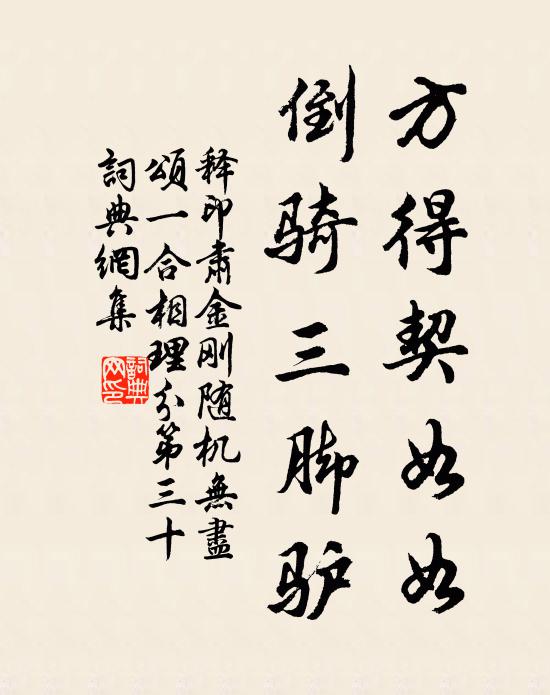 方得契如如
倒骑三脚驴
释印肃金刚随机無盡
頌一合相理分第三十
詞典網集
詞典
网印